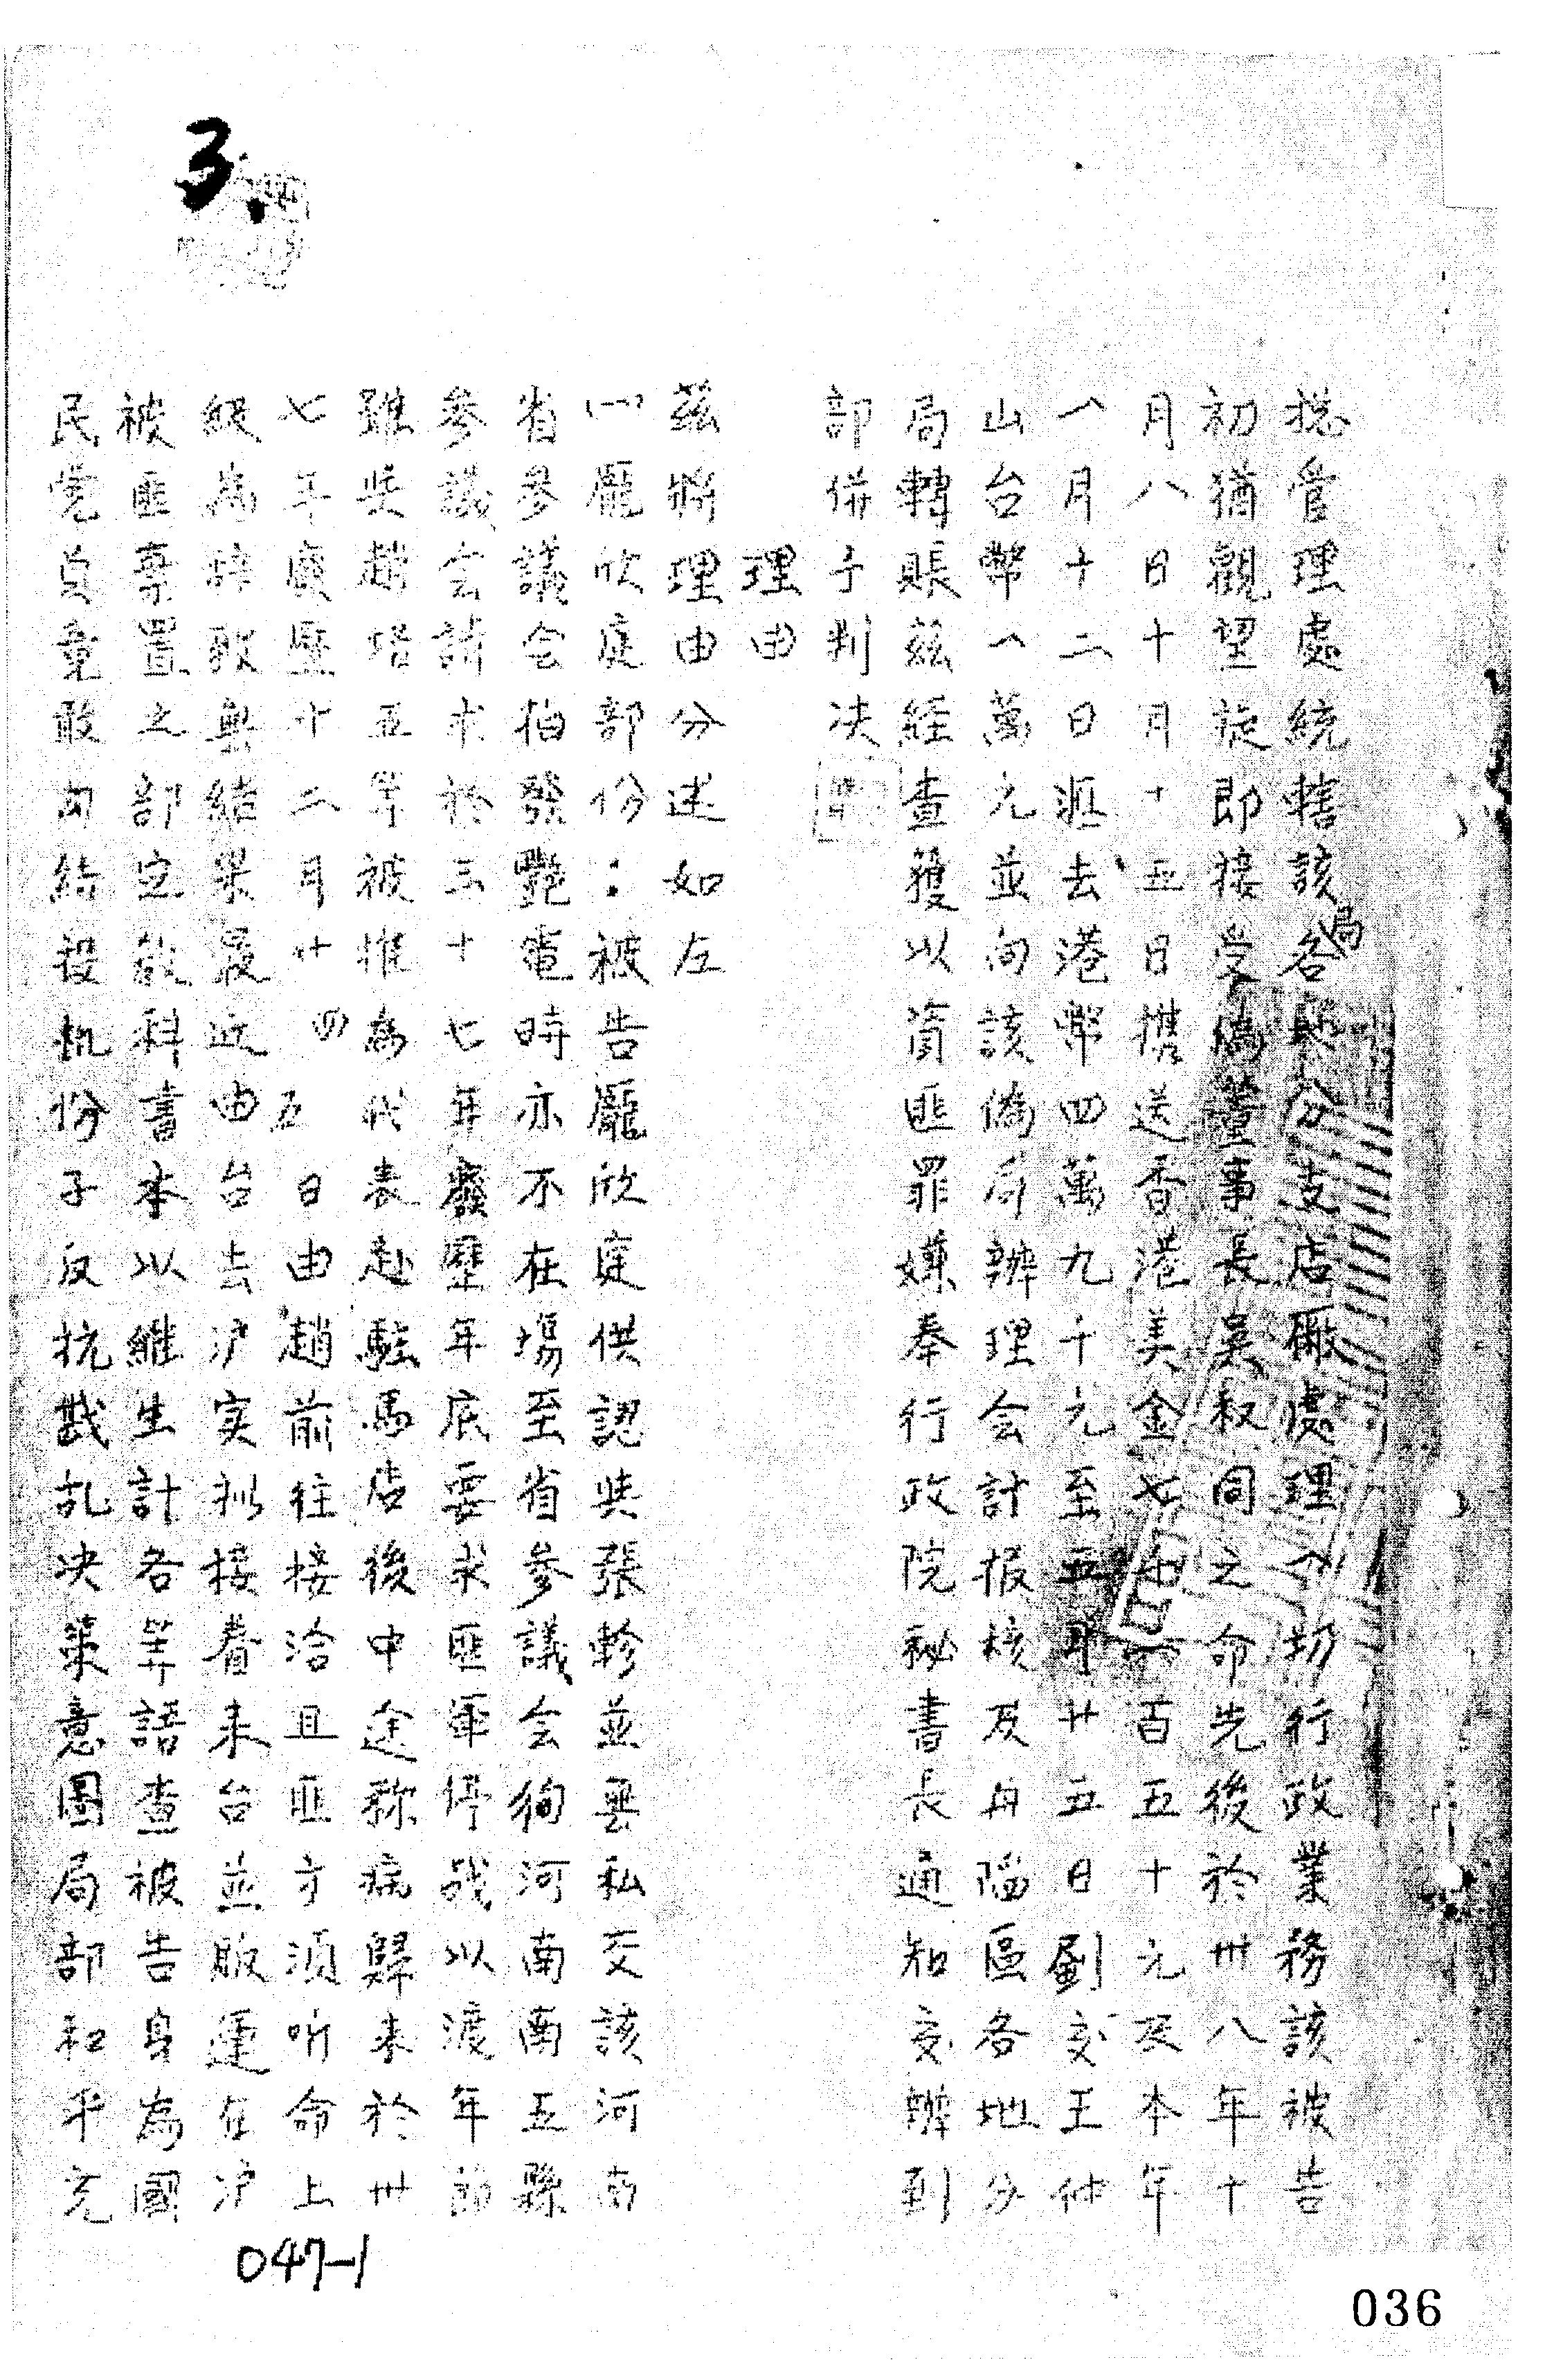 3.
總管理處統轄該局各縣分支店廠處理人切行政業務該被告
初猶觀望旋即接受偽董事長吳叔同之命先後於卅八年十
月八日十月十五日携送香港美金七千八百五十元及本年
八月十二日滙去港幣四萬九千元至五月廿五日劉交王仲
山台幣八萬元並向該偽局辦理会計报核及舟陷區各地分
局轉賬茲經查獲以資匪罪嫌奉行政院秘書長通知交辦到
部併予判决
理由
茲將理由分述如左
㈠龐欣庭部份：被告龐欣庭供認與張軫並無私交該河南
省參議会拍發艷電時亦不在場至省參議会徇河南南五縣
參議会請求於三十七年廢歷年底要求匪軍停战以渡年節
雖與趙培五等被推為代表赴駐馬店後中途称病歸来於卅
七年廢歷十二月廿四五日由趙前往接洽且匪方須听命上
級為辞致無結果最近由台去沪实拟接眷来台並販運在沪
被匪棄置之部定教科書本以維生計各等語查被告身為國
民党員竟敢勾结投机份子反抗戡乱决策意圖局部和平充
047-1
036